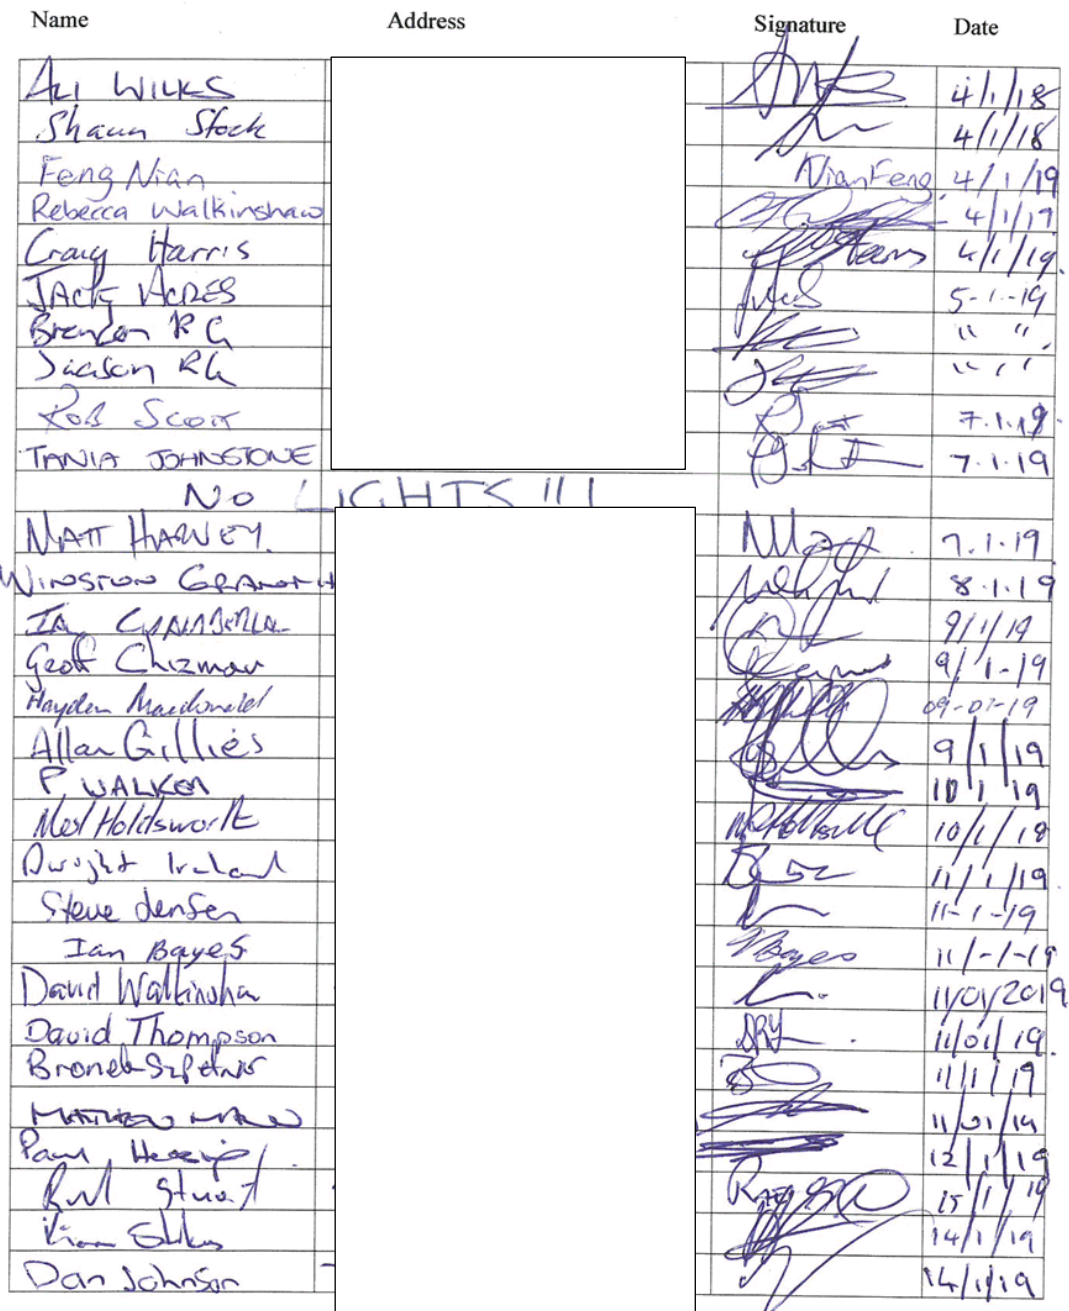 Name Address Signature Date
ALI WILKS 4/1/18
Shaun Stock 4/1/18
Feng Nian NianFeng 4/1/19
Rebecca Walkinshaw 4/1/19
Craig Harris 4/1/19.
JACK ACRES 5-1-19
Brendon RG " "
Jackson RG " "
ROB SCOTT 7.1.19
TANIA JOHNSTONE 7.1.19
NO LIGHTS !!!
MATT HARVEY. 7.1.19
WINSTON 8.1.19
9/1/19
Geoff Chizmar 9/1-19
Hayden Macdonald 09-01-19
Allan Gillies 9/1/19
P. WALKER 10/1/19
Holdsworth 10/1/18
Dwight Ireland 11/1/19
Steve Jensen 11-1-19
Ian Bayes Bayes 11/-1-19
David Walkinshaw 11/01/2019
David Thompson 11/01/19.
11/1/19
MATTHEW 11/01/19
Paul 12/1/19
Stuart 15/1/19
14/1/19
Dan Johnson 14/1/19